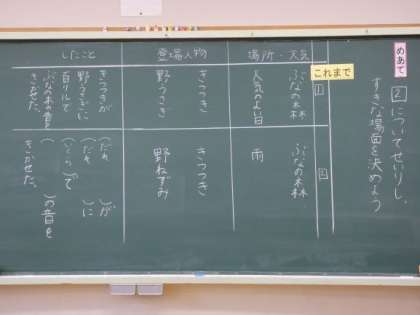 めあて
2についてせいりし、
すきな場面を決めよう
これまで
場所・天気
登場人物
したこと
1
ぶなの森
天気のよい日
きつつき
野うさぎ
きつつきが
野うさぎに
百リルで
ぶなの木の音を
きかせた。
2
ぶなの森
雨
きつつき
野ねずみ
(だれ)が
(だれ)に
(いくら)で
( )の音を
きかせた。